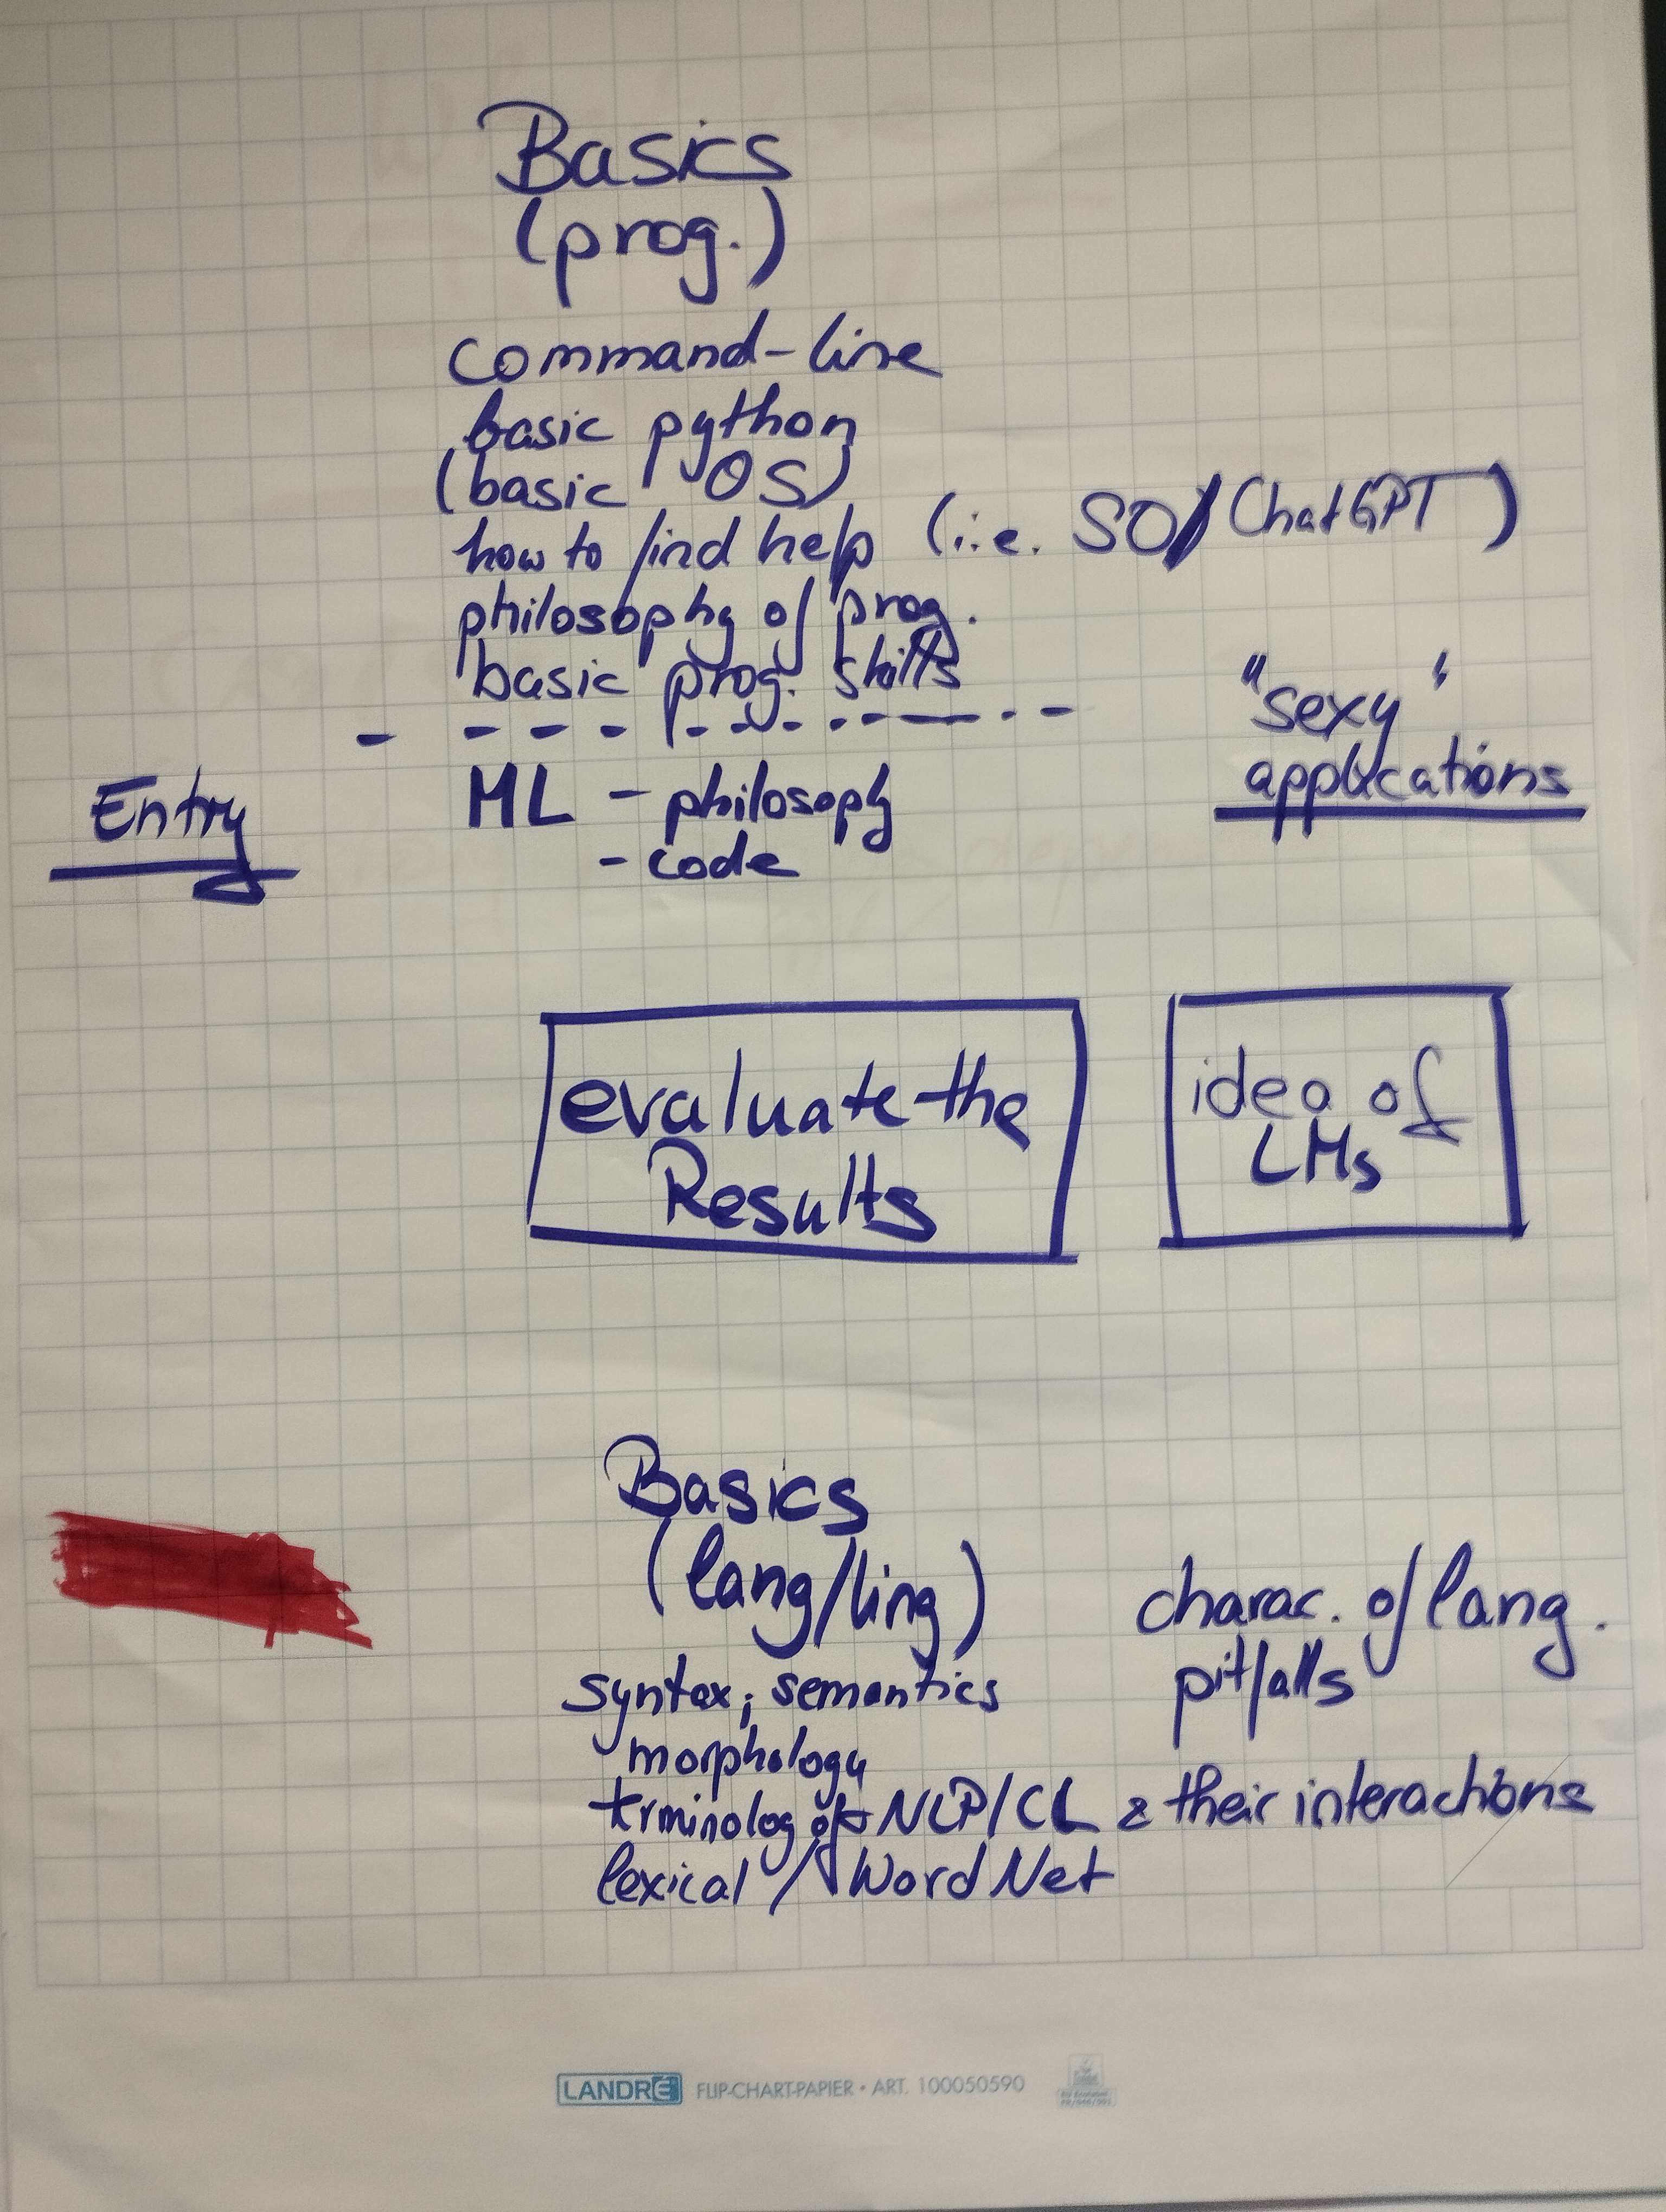 Basics
(prog.)
command-line
basic python
(basic OS)
how to find help (i.e. SO/ChatGPT)
philosophy of prog.
basic prog. skills
"sexy"
applications
Entry
ML - philosophy
- code
evaluate the
Results
idea of
LMs
Basics
(lang/ling)
syntax; semantics
morphology
charac. of lang.
pitfalls
trminolog of NLP/CL & their interactions
lexical / WordNet
LANDRÉ FLIP-CHART-PAPIER • ART. 100050590